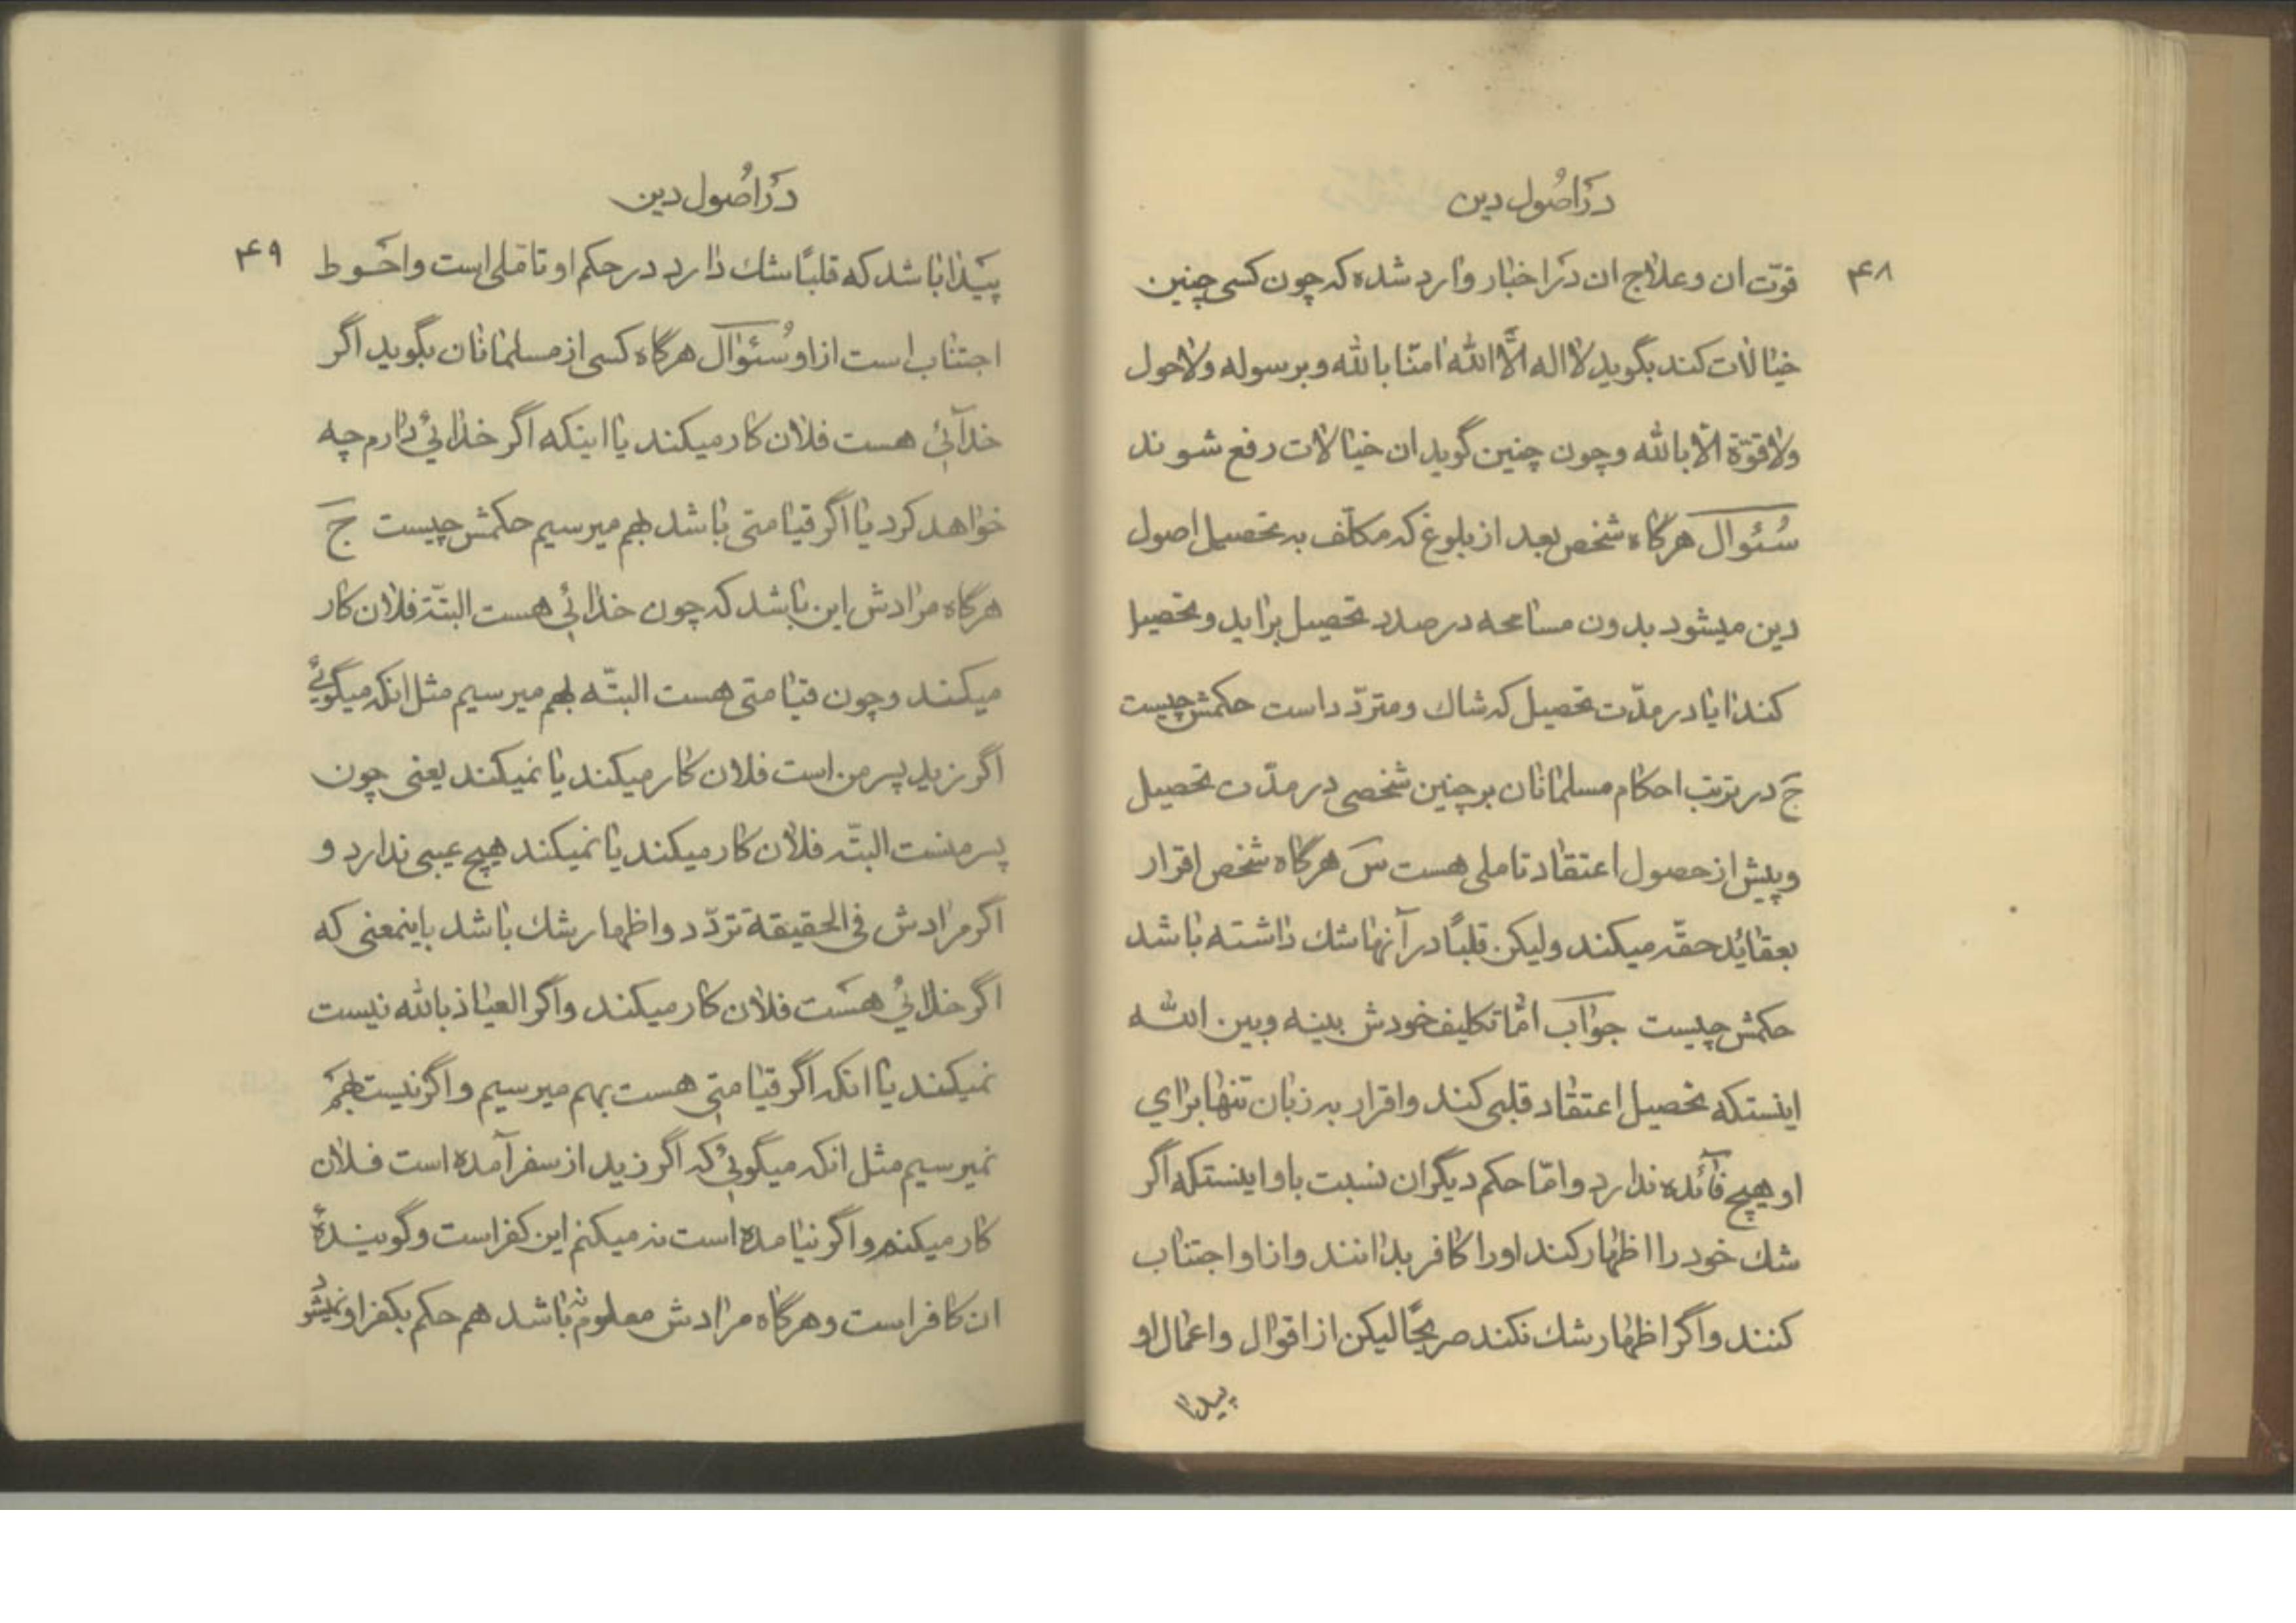 در اصول دین
۴۸
قوّت ان و علاج ان در اخبار وارد شده که چون کسی چنین
خیالات کند بگوید لا اله الّا الله امنّا بالله و برسوله ولا حول
ولا قوّة الّا بالله و چون چنین گوید ان خیالات رفع شوند
سُئوال هرگاه شخص بعد از بلوغ که مکلّف به تحصیل اصول
دین میشود بدون مسامحه در صدد تحصیل براید و تحصیل
کند ایا در مدّت تحصیل که شاك و متردّد است حکمش چیست
ج در ترتب احکام مسلمانان بر چنین شخصی در مدّت تحصیل
و پیش از حصول اعتقاد تاملی هست س هرگاه شخص اقرار
بعقائد حقّه میکند ولیکن قلبًا در آنها شك داشته باشد
حکمش چیست جواب امّا تکلیف خودش بینه و بین الله
اینستکه تحصیل اعتقاد قلبی کند و اقرار به زبان تنها برای
او هیچ فائده ندارد و امّا حکم دیگران نسبت باو اینستکه اگر
شك خود را اظهار کند اورا کافر بدانند و از او اجتناب
کنند و اگر اظهار شك نکند صریحًا لیکن از اقوال و اعمال او
پیدا
در اصول دین
۴۹
پیدا باشد که قلبًا شك دارد در حکم او تاملی است و احوط
اجتناب است از او سُئوال هرگاه کسی از مسلمانان بگوید اگر
خدائی هست فلان کار میکند یا اینکه اگر خدائی دارم چه
خواهد کرد یا اگر قیامتی باشد بهم میرسیم حکمش چیست ج
هرگاه مرادش این باشد که چون خدائی هست البتّه فلان کار
میکند و چون قیامتی هست البتّه بهم میرسیم مثل انکه میگوئی
اگر زید پسر من است فلان کار میکند یا نمیکند یعنی چون
پسر منست البتّه فلان کار میکند یا نمیکند هیچ عیبی ندارد و
اگر مرادش فی الحقیقة تردّد و اظهار شك باشد باینمعنی که
اگر خدائی هست فلان کار میکند و اگر العیاذ بالله نیست
نمیکند یا انکه اگر قیامتی هست بهم میرسیم و اگر نیست بهم
نمیرسیم مثل انکه میگوئی که اگر زید از سفر آمده است فلان
کار میکنم و اگر نیامده است نه میکنم این کفر است و گویندهٔ
ان کافر است و هرگاه مرادش معلوم نباشد هم حکم بکفر او نمیشود